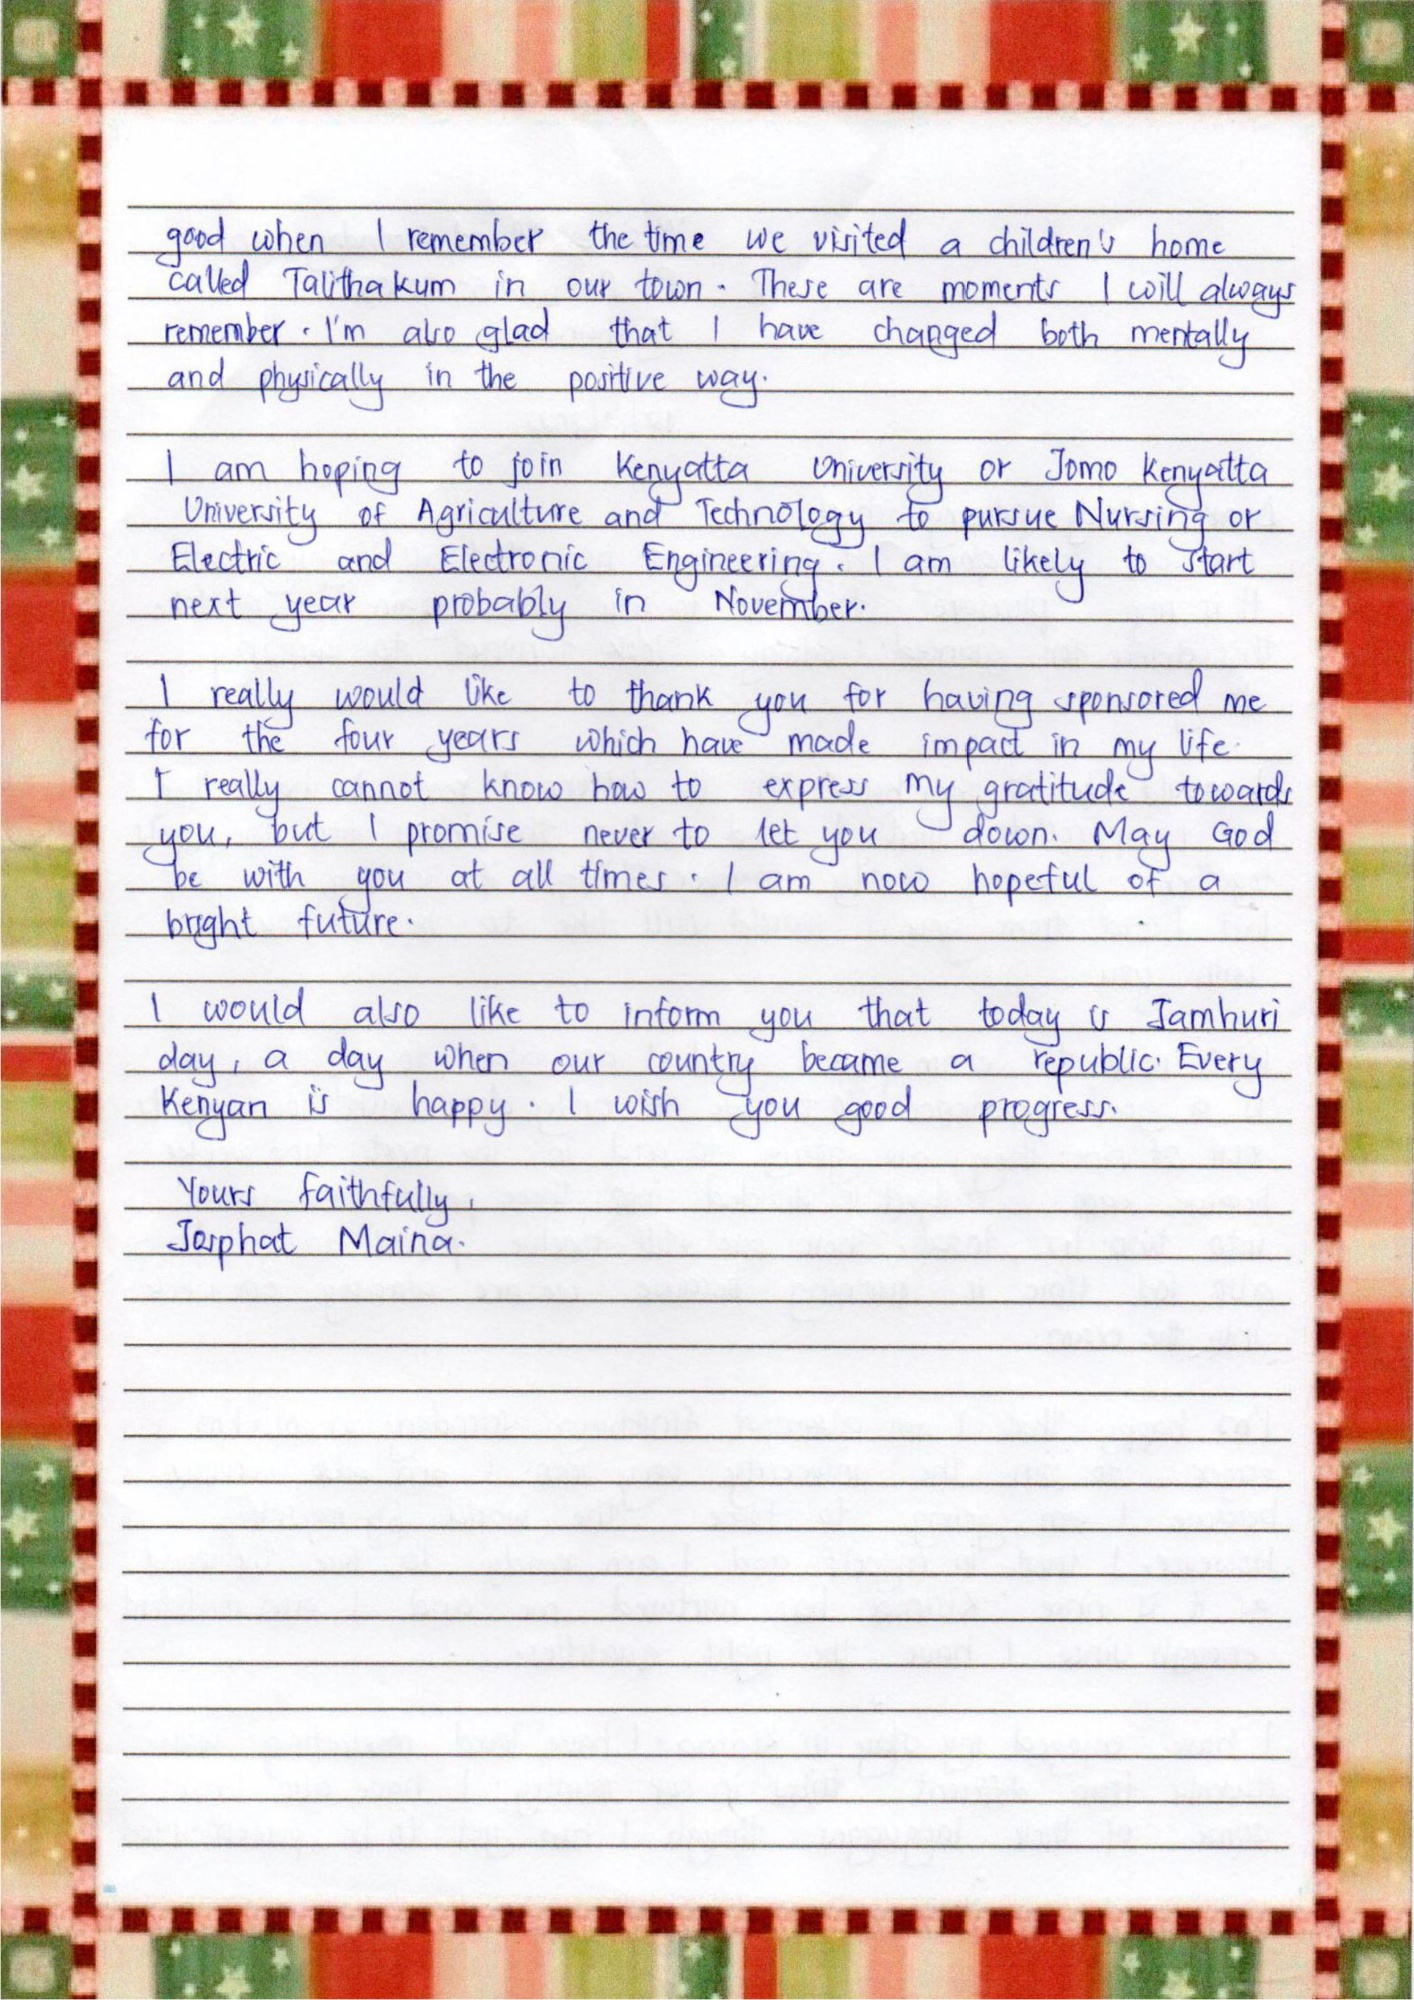 good when I remember the time we visited a children's home
called Talithakum in our town. These are moments I will always
remember. I'm also glad that I have changed both mentally
and physically in the positive way.
I am hoping to join Kenyatta University or Jomo Kenyatta
University of Agriculture and Technology to pursue Nursing or
Electric and Electronic Engineering. I am likely to start
next year probably in November.
I really would like to thank you for having sponsored me
for the four years which have made impact in my life.
I really cannot know how to express my gratitude towards
you, but I promise never to let you down. May God
be with you at all times. I am now hopeful of a
bright future.
I would also like to inform you that today is Jamhuri
day, a day when our country became a republic. Every
Kenyan is happy. I wish you good progress.
Yours faithfully,
Maina.